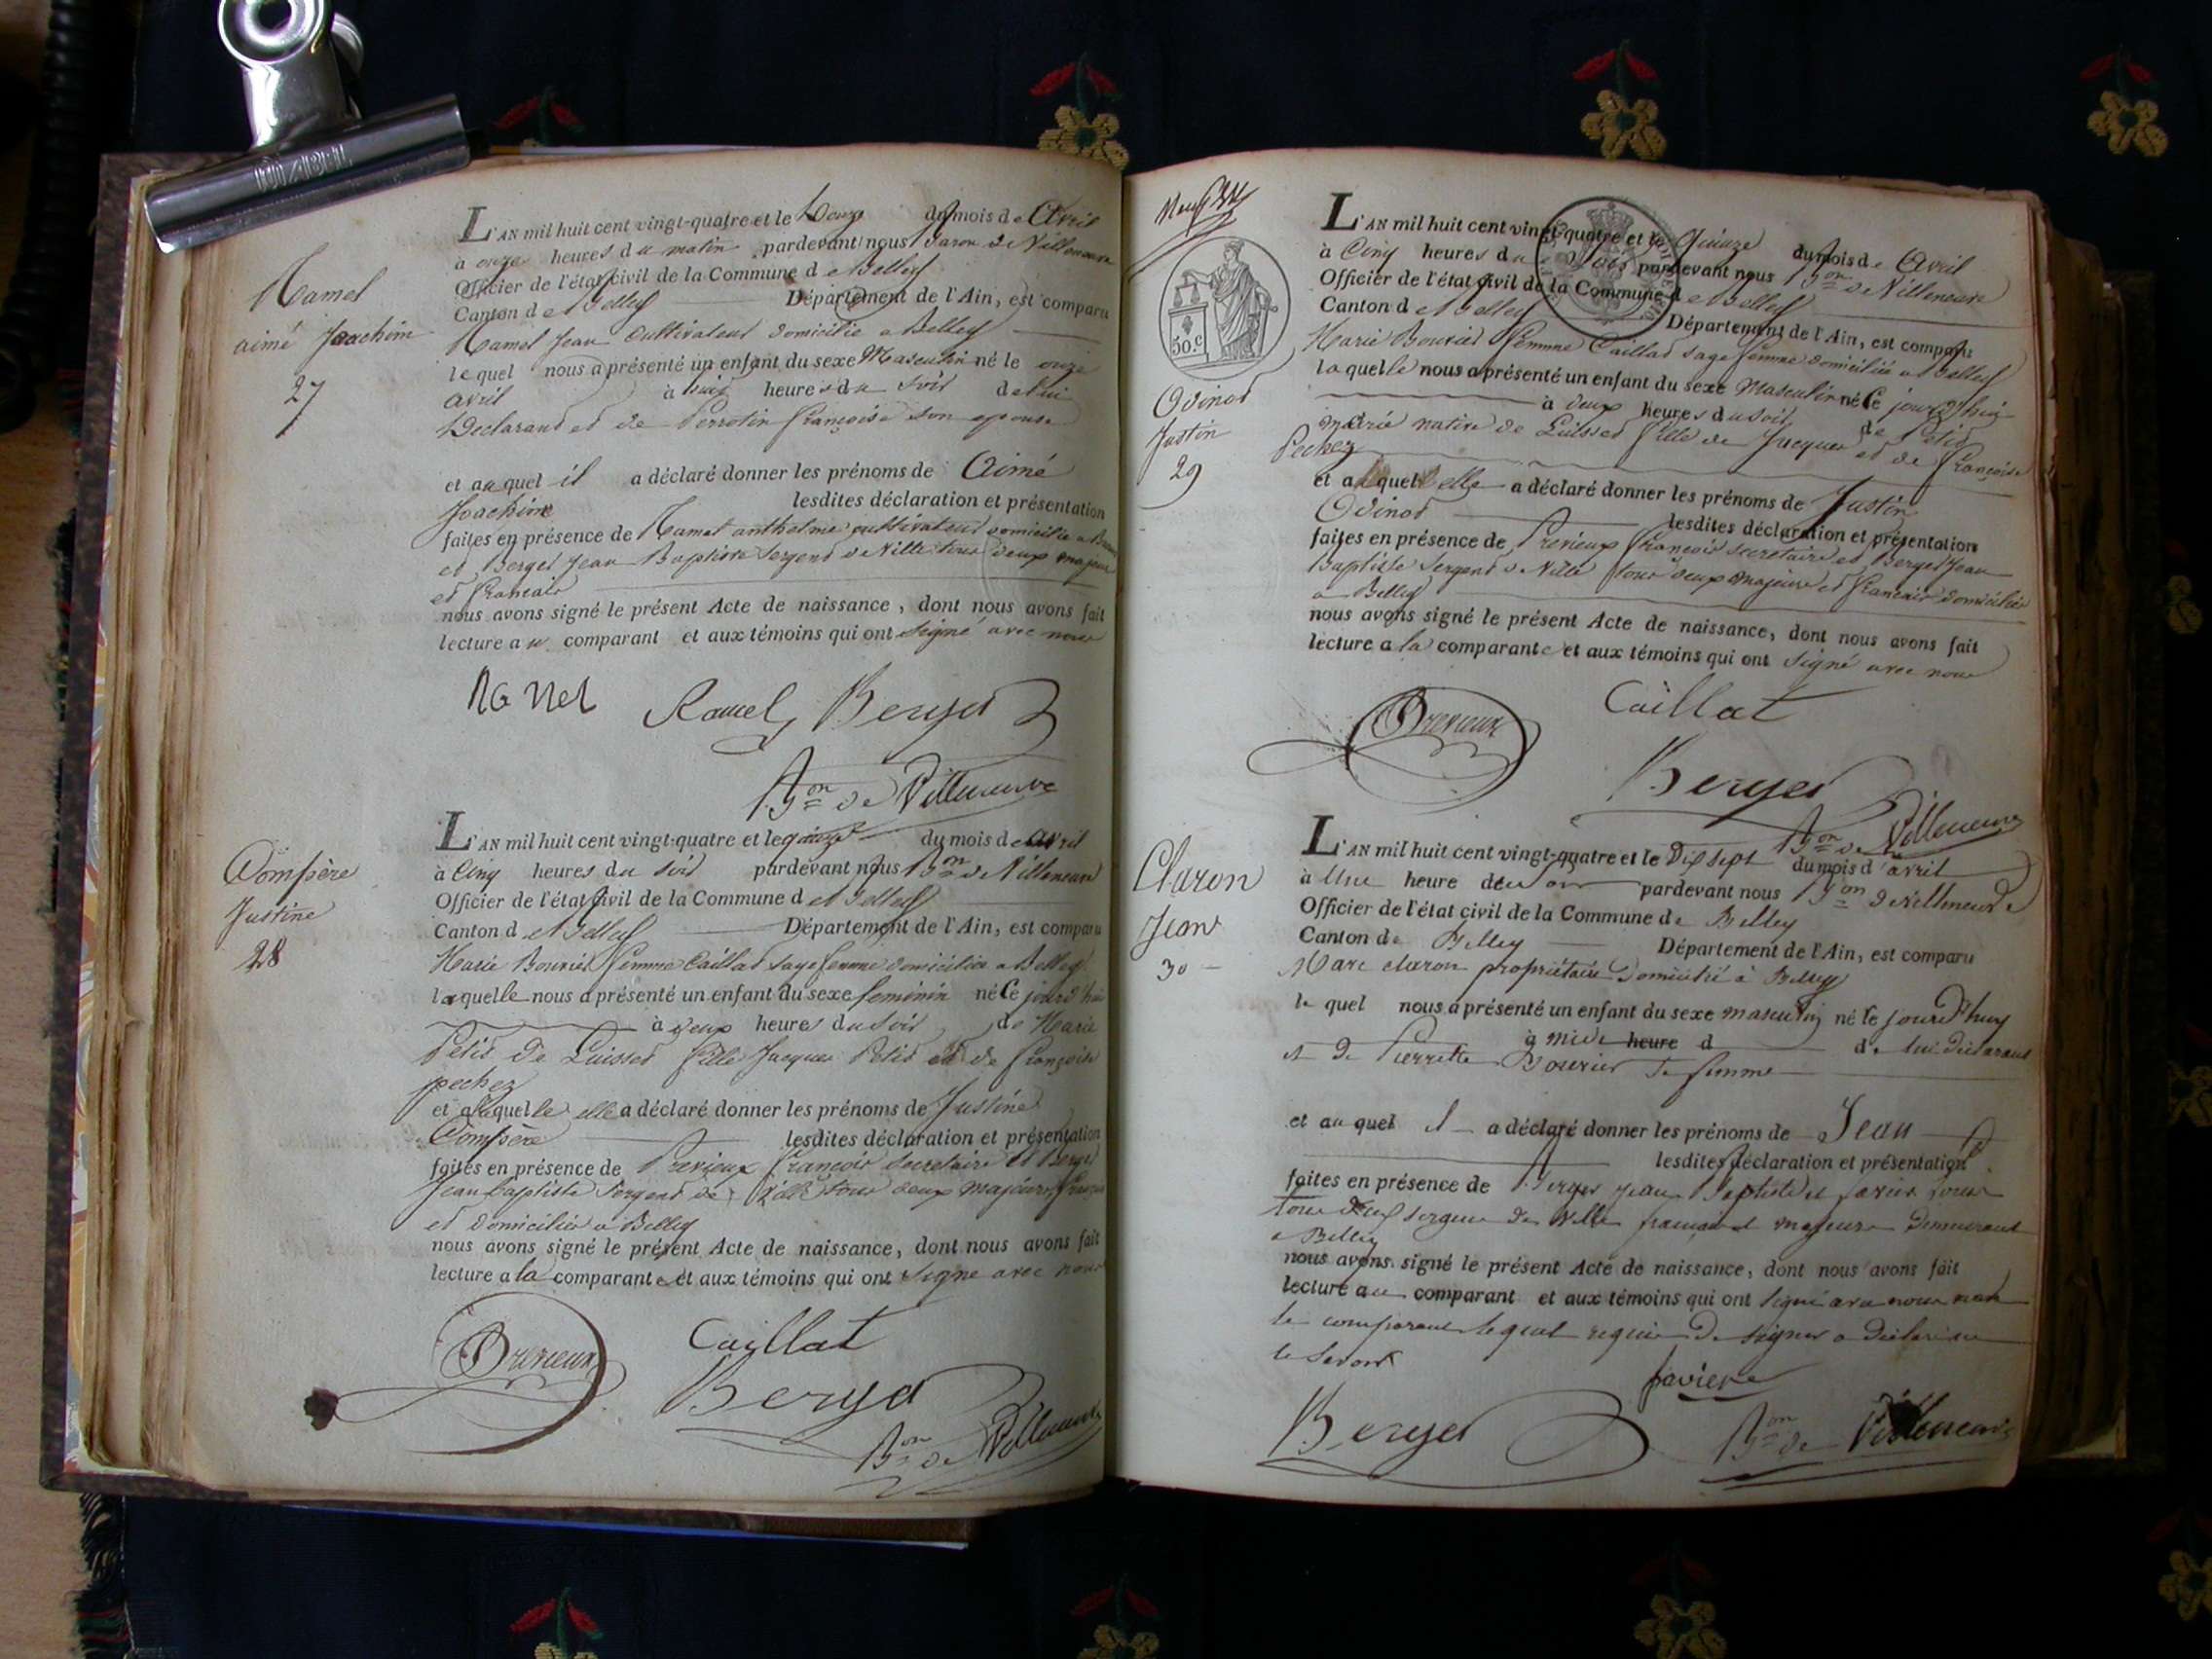 Ramel
aimé Joachim
27
L'AN mil huit cent vingt-quatre et le Douze du mois de Avril
à onze heures du matin pardevant nous Baron de Villeneuve
Officier de l'état civil de la Commune de Belley
Canton de Belley Département de l'Ain, est comparu
Ramel Jean Cultivateur domicilié a Belley
lequel nous a présenté un enfant du sexe Masculin né le onze
avril à huit heures du soir de lui
Declarant et de Perrotin françoise son epouse
et auquel il a déclaré donner les prénoms de Aimé
Joachim lesdites déclaration et présentation
faites en présence de Ramel anthelme cultivateur domicilié a
et Berger Jean Baptiste Sergent de Ville tous deux majeurs
et francais
nous avons signé le présent Acte de naissance, dont nous avons fait
lecture au comparant et aux témoins qui ont signé avec nous
Ramel Berger
Bon de Villeneuve
Compère
Justine
28
L'AN mil huit cent vingt-quatre et le quinze du mois de avril
à Cinq heures du soir pardevant nous Bon de Villeneuve
Officier de l'état civil de la Commune de Belley
Canton de Belley Département de l'Ain, est comparu
Marie Bouvier femme Caillat sage femme domiciliée a Belley
laquelle nous a présenté un enfant du sexe feminin né Ce jourd'hui
à deux heures du soir de Marie
Petit de Cuisset fille Jacques Petit et de françoise
pechez
et a laquelle elle a déclaré donner les prénoms de Justine
Compère lesdites déclaration et présentation
faites en présence de Previeux françois Secretaire et Berger
Jean baptiste Sergent de Ville tous deux majeurs francais
et domiciliés a Belley
nous avons signé le présent Acte de naissance, dont nous avons fait
lecture a la comparante et aux témoins qui ont signé avec nous
Previeux Caillat
Berger
Bon de Villeneuve
50.c
Odinot
Justin
29
L'AN mil huit cent vingt-quatre et le Quinze du mois de Avril
à Cinq heures du Soir pardevant nous Bon de Villeneuve
Officier de l'état civil de la Commune de Belley
Canton de Belley Département de l'Ain, est comparu
Marie Bouvier femme Caillat sage femme domiciliée a Belley
laquelle nous a présenté un enfant du sexe Masculin né Ce jourd'hui
à deux heures du soir de Petit
marie native de Cuisset fille de Jacques et de françoise
Pechez
et auquel elle a déclaré donner les prénoms de Justin
Odinot lesdites déclaration et présentation
faites en présence de Previeux françois secretaire et Berger Jean
Baptiste Sergent de Ville tous deux majeurs et francais domiciliés
a Belley
nous avons signé le présent Acte de naissance, dont nous avons fait
lecture a la comparante et aux témoins qui ont signé avec nous
Previeux Caillat
Berger
Bon de Villeneuve
Claron
Jean
30
L'AN mil huit cent vingt-quatre et le Dix sept du mois d'avril
à Une heure du soir pardevant nous Bon de Villeneuve
Officier de l'état civil de la Commune de Belley
Canton de Belley Département de l'Ain, est comparu
Marc claron propriétaire Domicilié à Belley
le quel nous a présenté un enfant du sexe masculin né le jourd'huy
à midi heure d de lui déclarant
et de Pierrette Bouvier sa femme
et au quel il a déclaré donner les prénoms de Jean
lesdites déclaration et présentation
faites en présence de Berger Jean Baptiste et favier
tous deux sergens de Ville francais et majeurs demeurant
a Belley
nous avons signé le présent Acte de naissance, dont nous avons fait
lecture au comparant et aux témoins qui ont signé avec nous non
le comparant lequel requis de signer a déclaré ne
le savoir
faviere
Berger Bon de Villeneuve